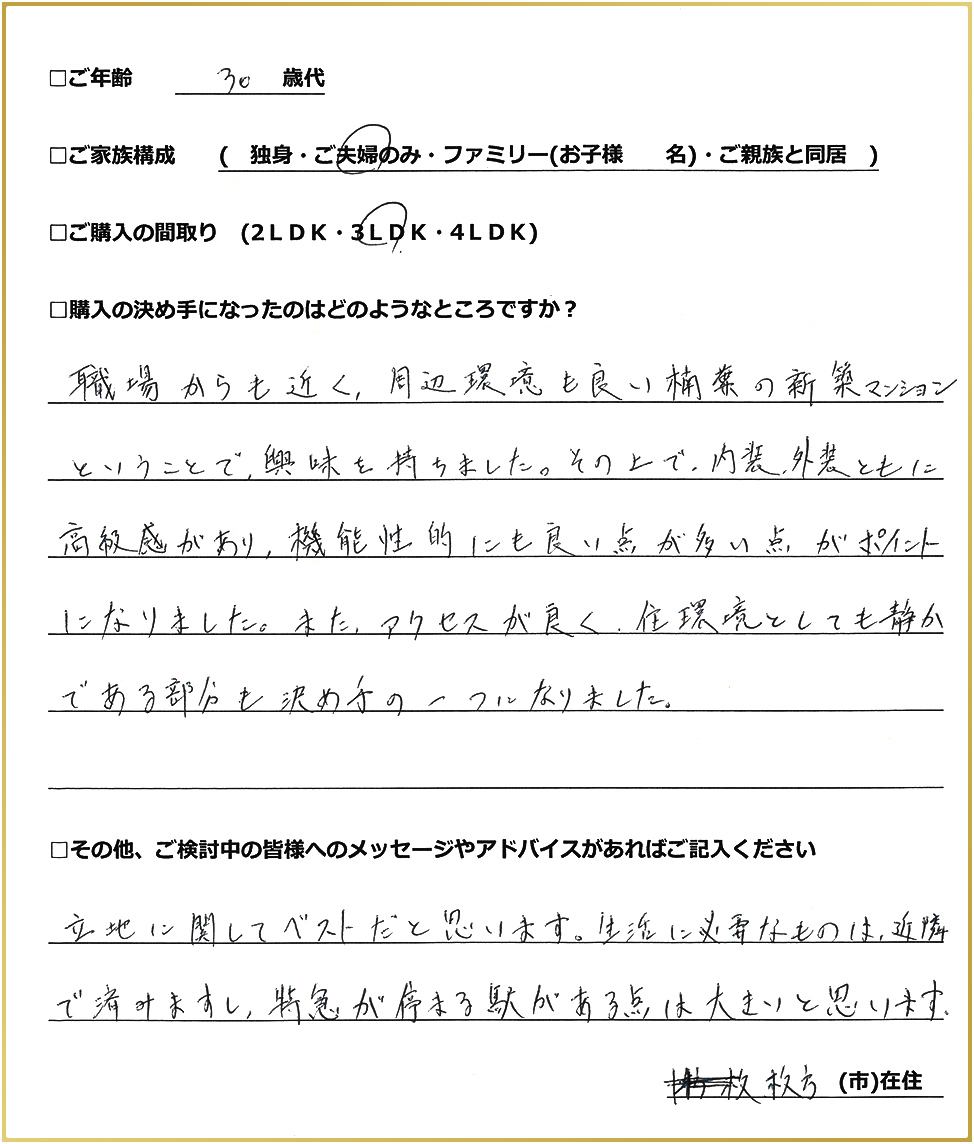 □ご年齢 30 歳代
□ご家族構成 ( 独身・ご夫婦のみ・ファミリー(お子様 名)・ご親族と同居 )
□ご購入の間取り (2LDK・3LDK・4LDK)
□購入の決め手になったのはどのようなところですか？
職場からも近く,周辺環境も良い楠葉の新築マンション
ということで,興味を持ちました。その上で,内装,外装ともに
高級感があり,機能性的にも良い点が多い点がポイント
になりました。また,アクセスが良く,住環境としても静か
である部分も決め手の一つになりました。
□その他、ご検討中の皆様へのメッセージやアドバイスがあればご記入ください
立地に関してベストだと思います。生活に必要なものは,近隣
で済みますし,特急が停まる駅がある点は大きいと思います.
枚方 (市)在住